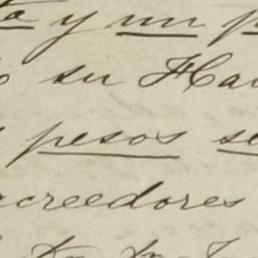 y un
su Ha
pesos se
acreedores